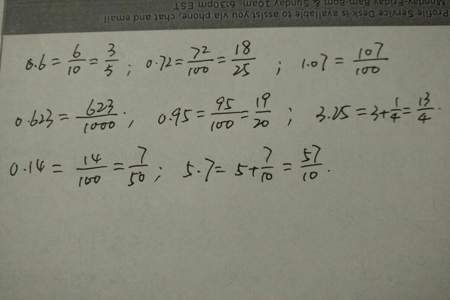 Profile Service Desk is available to assist you via phone, chat and email
Monday-Friday 8am-8pm & Sunday 10am-6:30pm EST
0.6 = 6/10 = 3/5 ; 0.72 = 72/100 = 18/25 ; 1.07 = 107/100
0.623 = 623/1000 ; 0.95 = 95/100 = 19/20 ; 3.25 = 3+1/4 = 13/4 .
0.14 = 14/100 = 7/50 ; 5.7 = 5+7/10 = 57/10 .